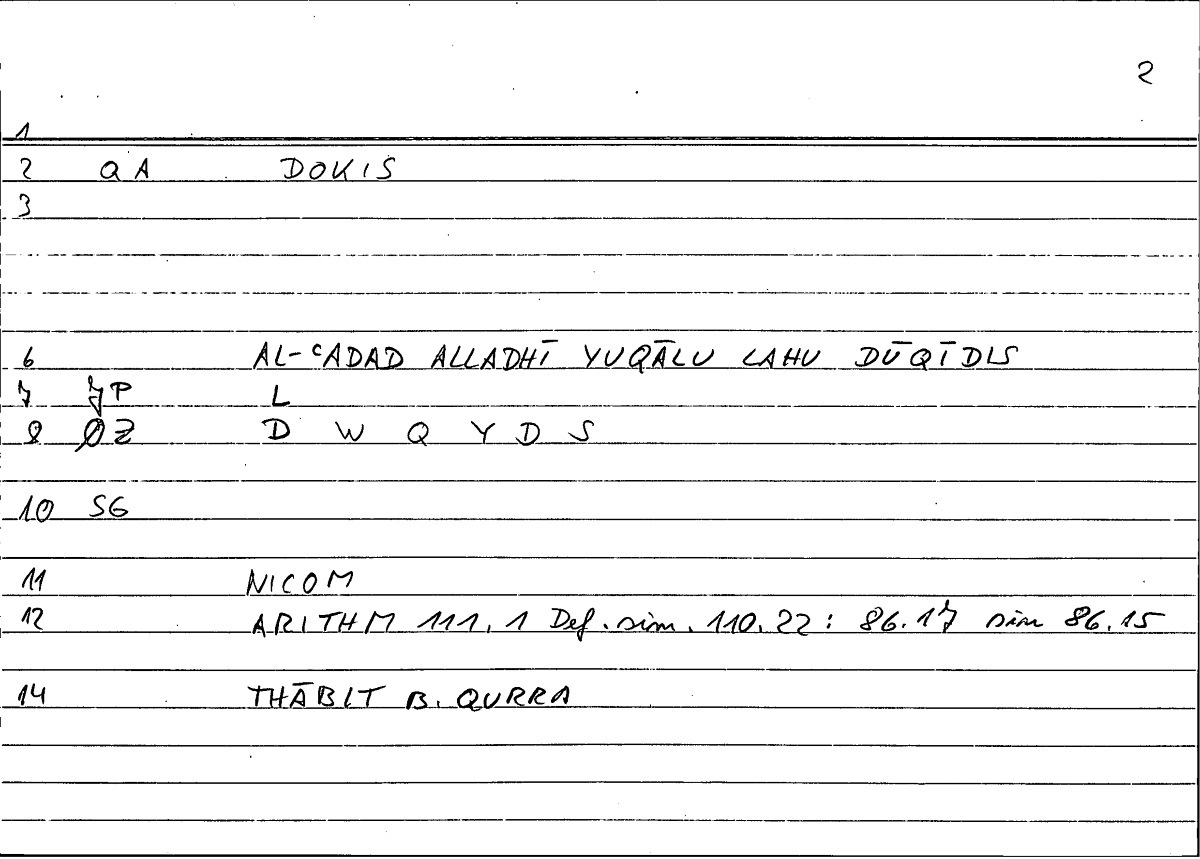 2
1
2 QA DOKIS
3
6 AL-ʿADAD ALLADHĪ YUQĀLU LAHU DŪQĪDIS
7 JP L
8 ØZ D W Q Y D S
10 SG
11 NICOM
12 ARITHM 111.1 Def. sim. 110.22 : 86.17 sim 86.15
14 THĀBIT B. QURRA